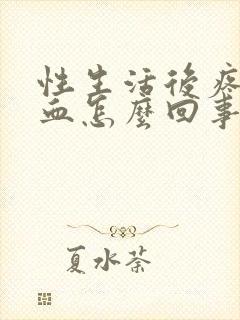 性生活後疼
血怎麼回事
夏水荼